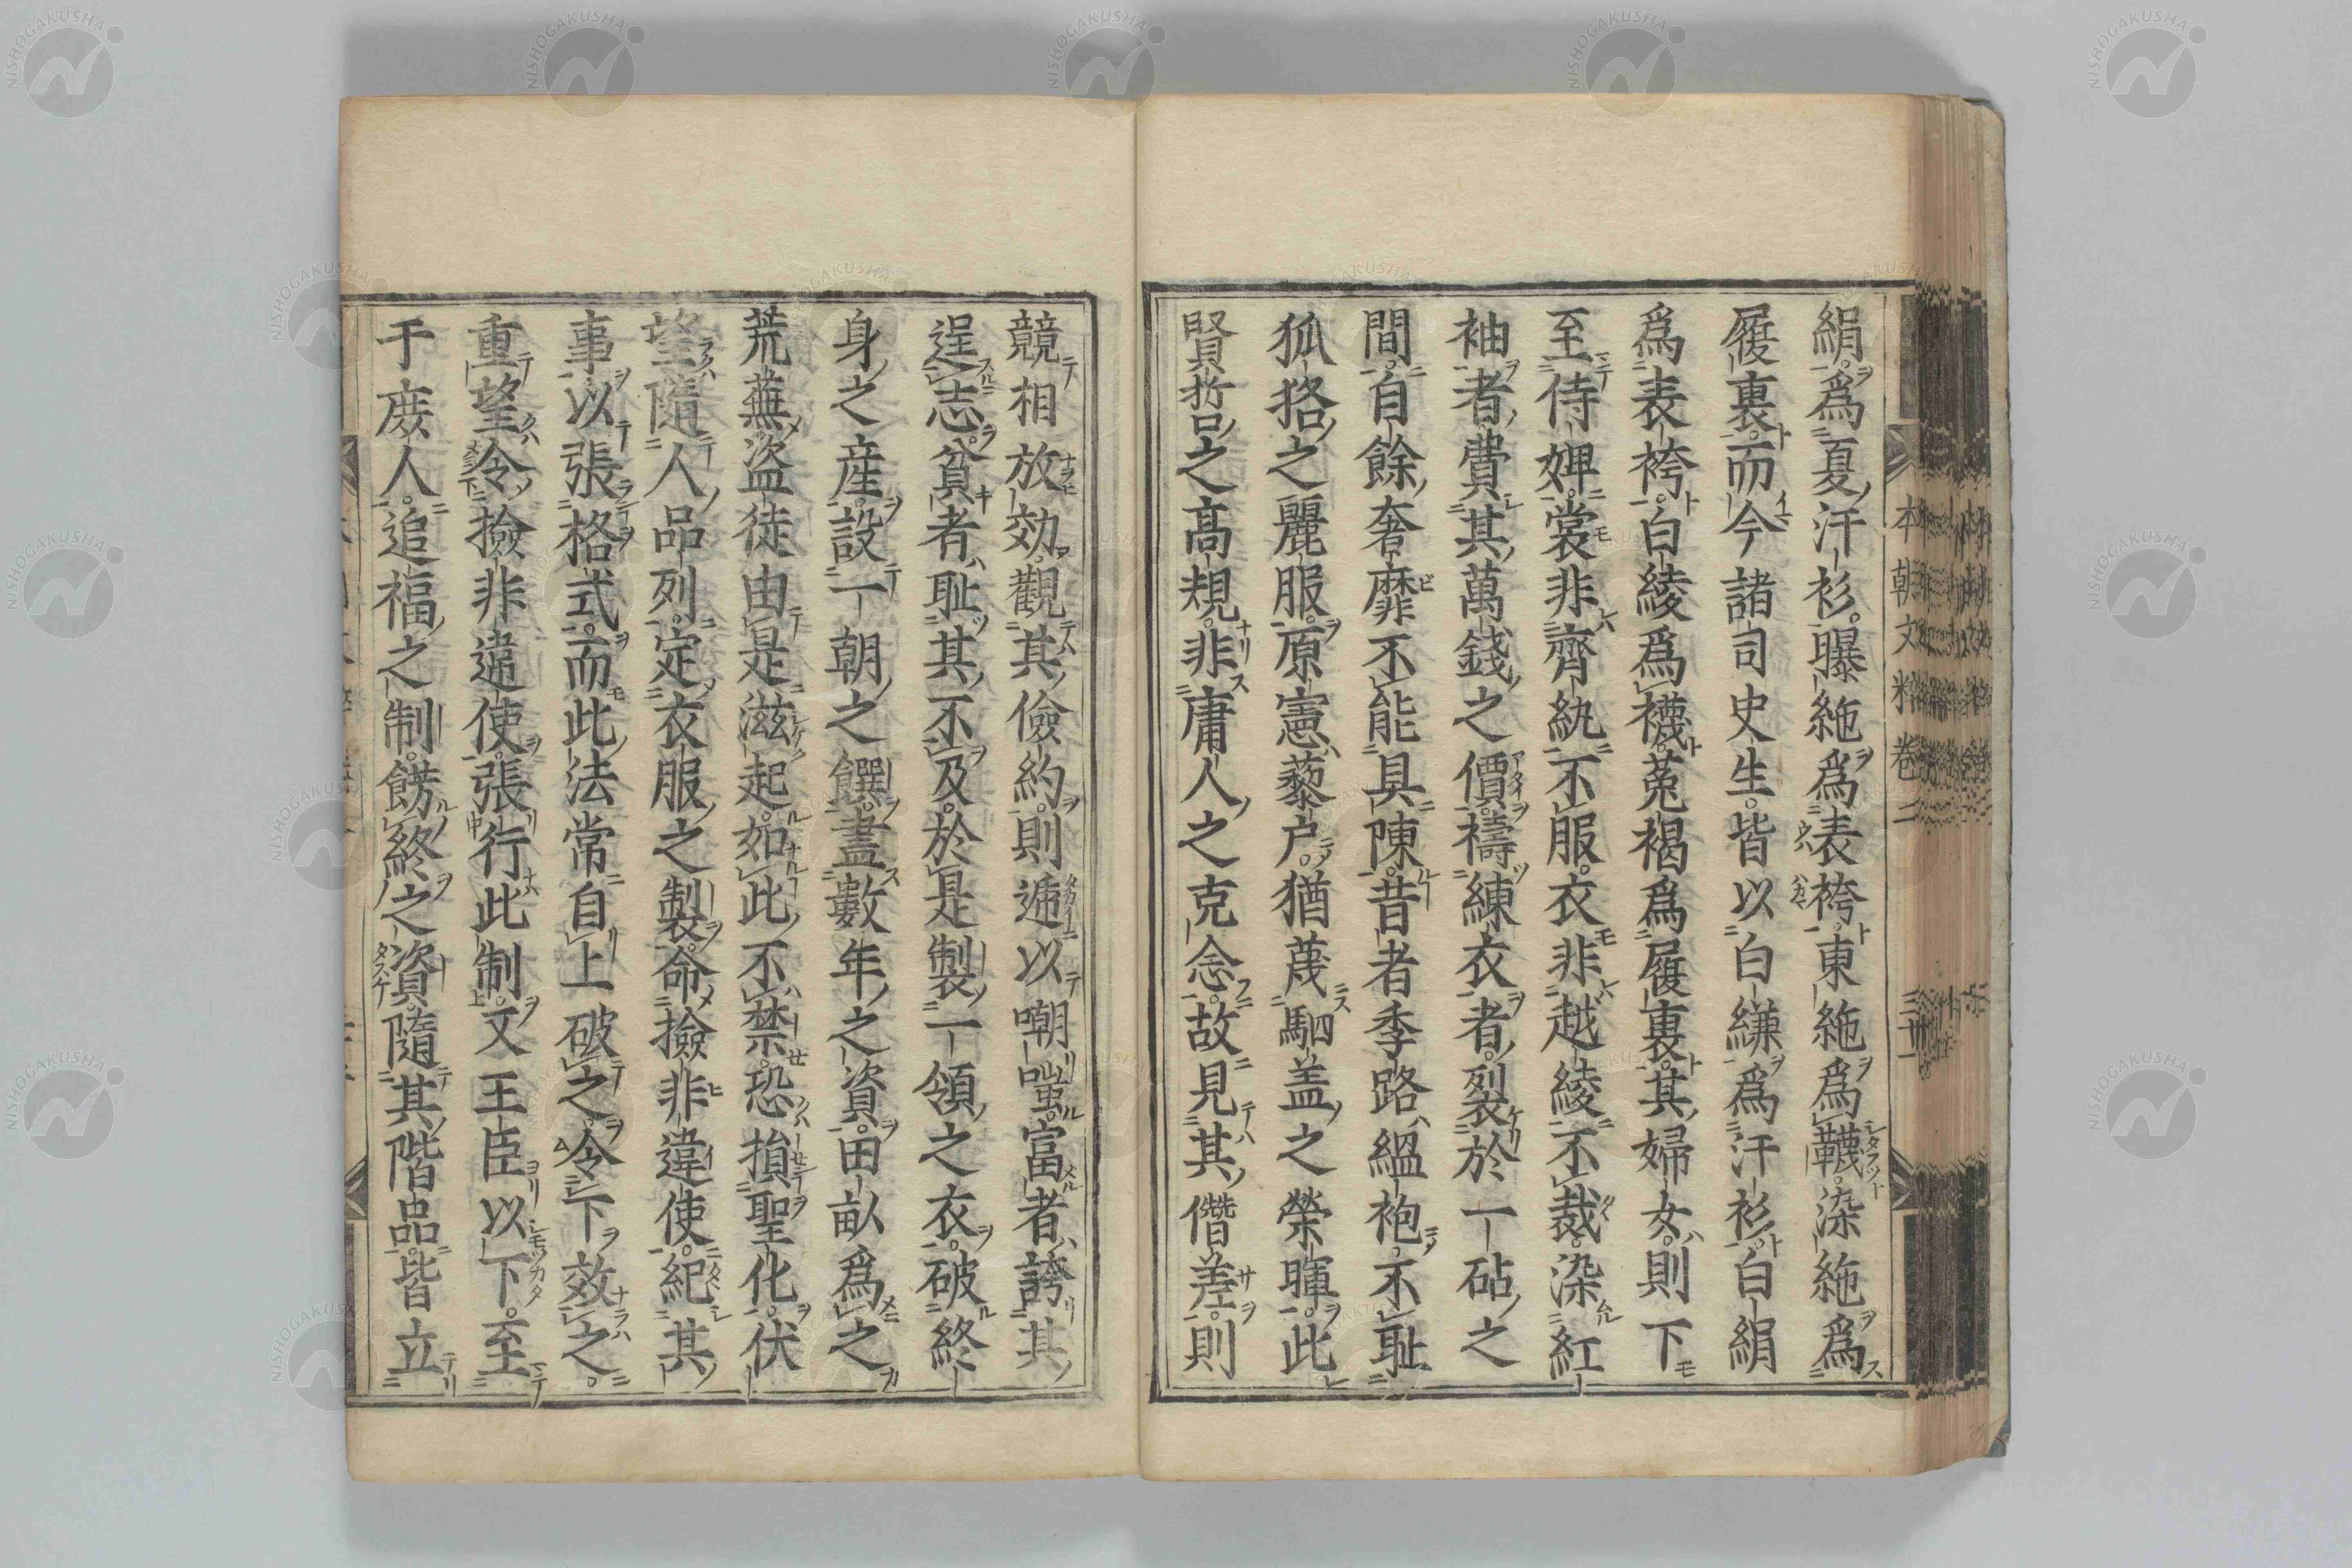 絹爲夏汗衫曝絁爲表袴東絁爲韈染絁爲
履裏而今諸司史生皆以白縑爲汗衫白絹
爲表袴白綾爲襪菟褐爲履裏其婦女則下
至侍婢裳非齊紈不服衣非越綾不裁染紅
袖者費其萬錢之價擣練衣者裂於一砧之
間自餘奢靡不能具陳昔者季路縕袍不耻
狐狢之麗服原憲藜戸猶蔑駟盖之榮暉此
賢哲之高規非庸人之克念故見其僭差則
競相放効觀其儉約則遞以嘲嗤富者誇其
逞志貧者耻其不及於是製一領之衣破終
身之産設一朝之饌盡數年之資田畝爲之
荒蕪盗徒由是滋起如此不禁恐損聖化伏
望隨人品列定衣服之製命撿非違使紀其
事以張格式而此法常自上破之令下效之
重望令撿非違使張行此制又王臣以下至
于庻人追福之制餝終之資隨其階品皆立
本朝文粹卷二
三十一